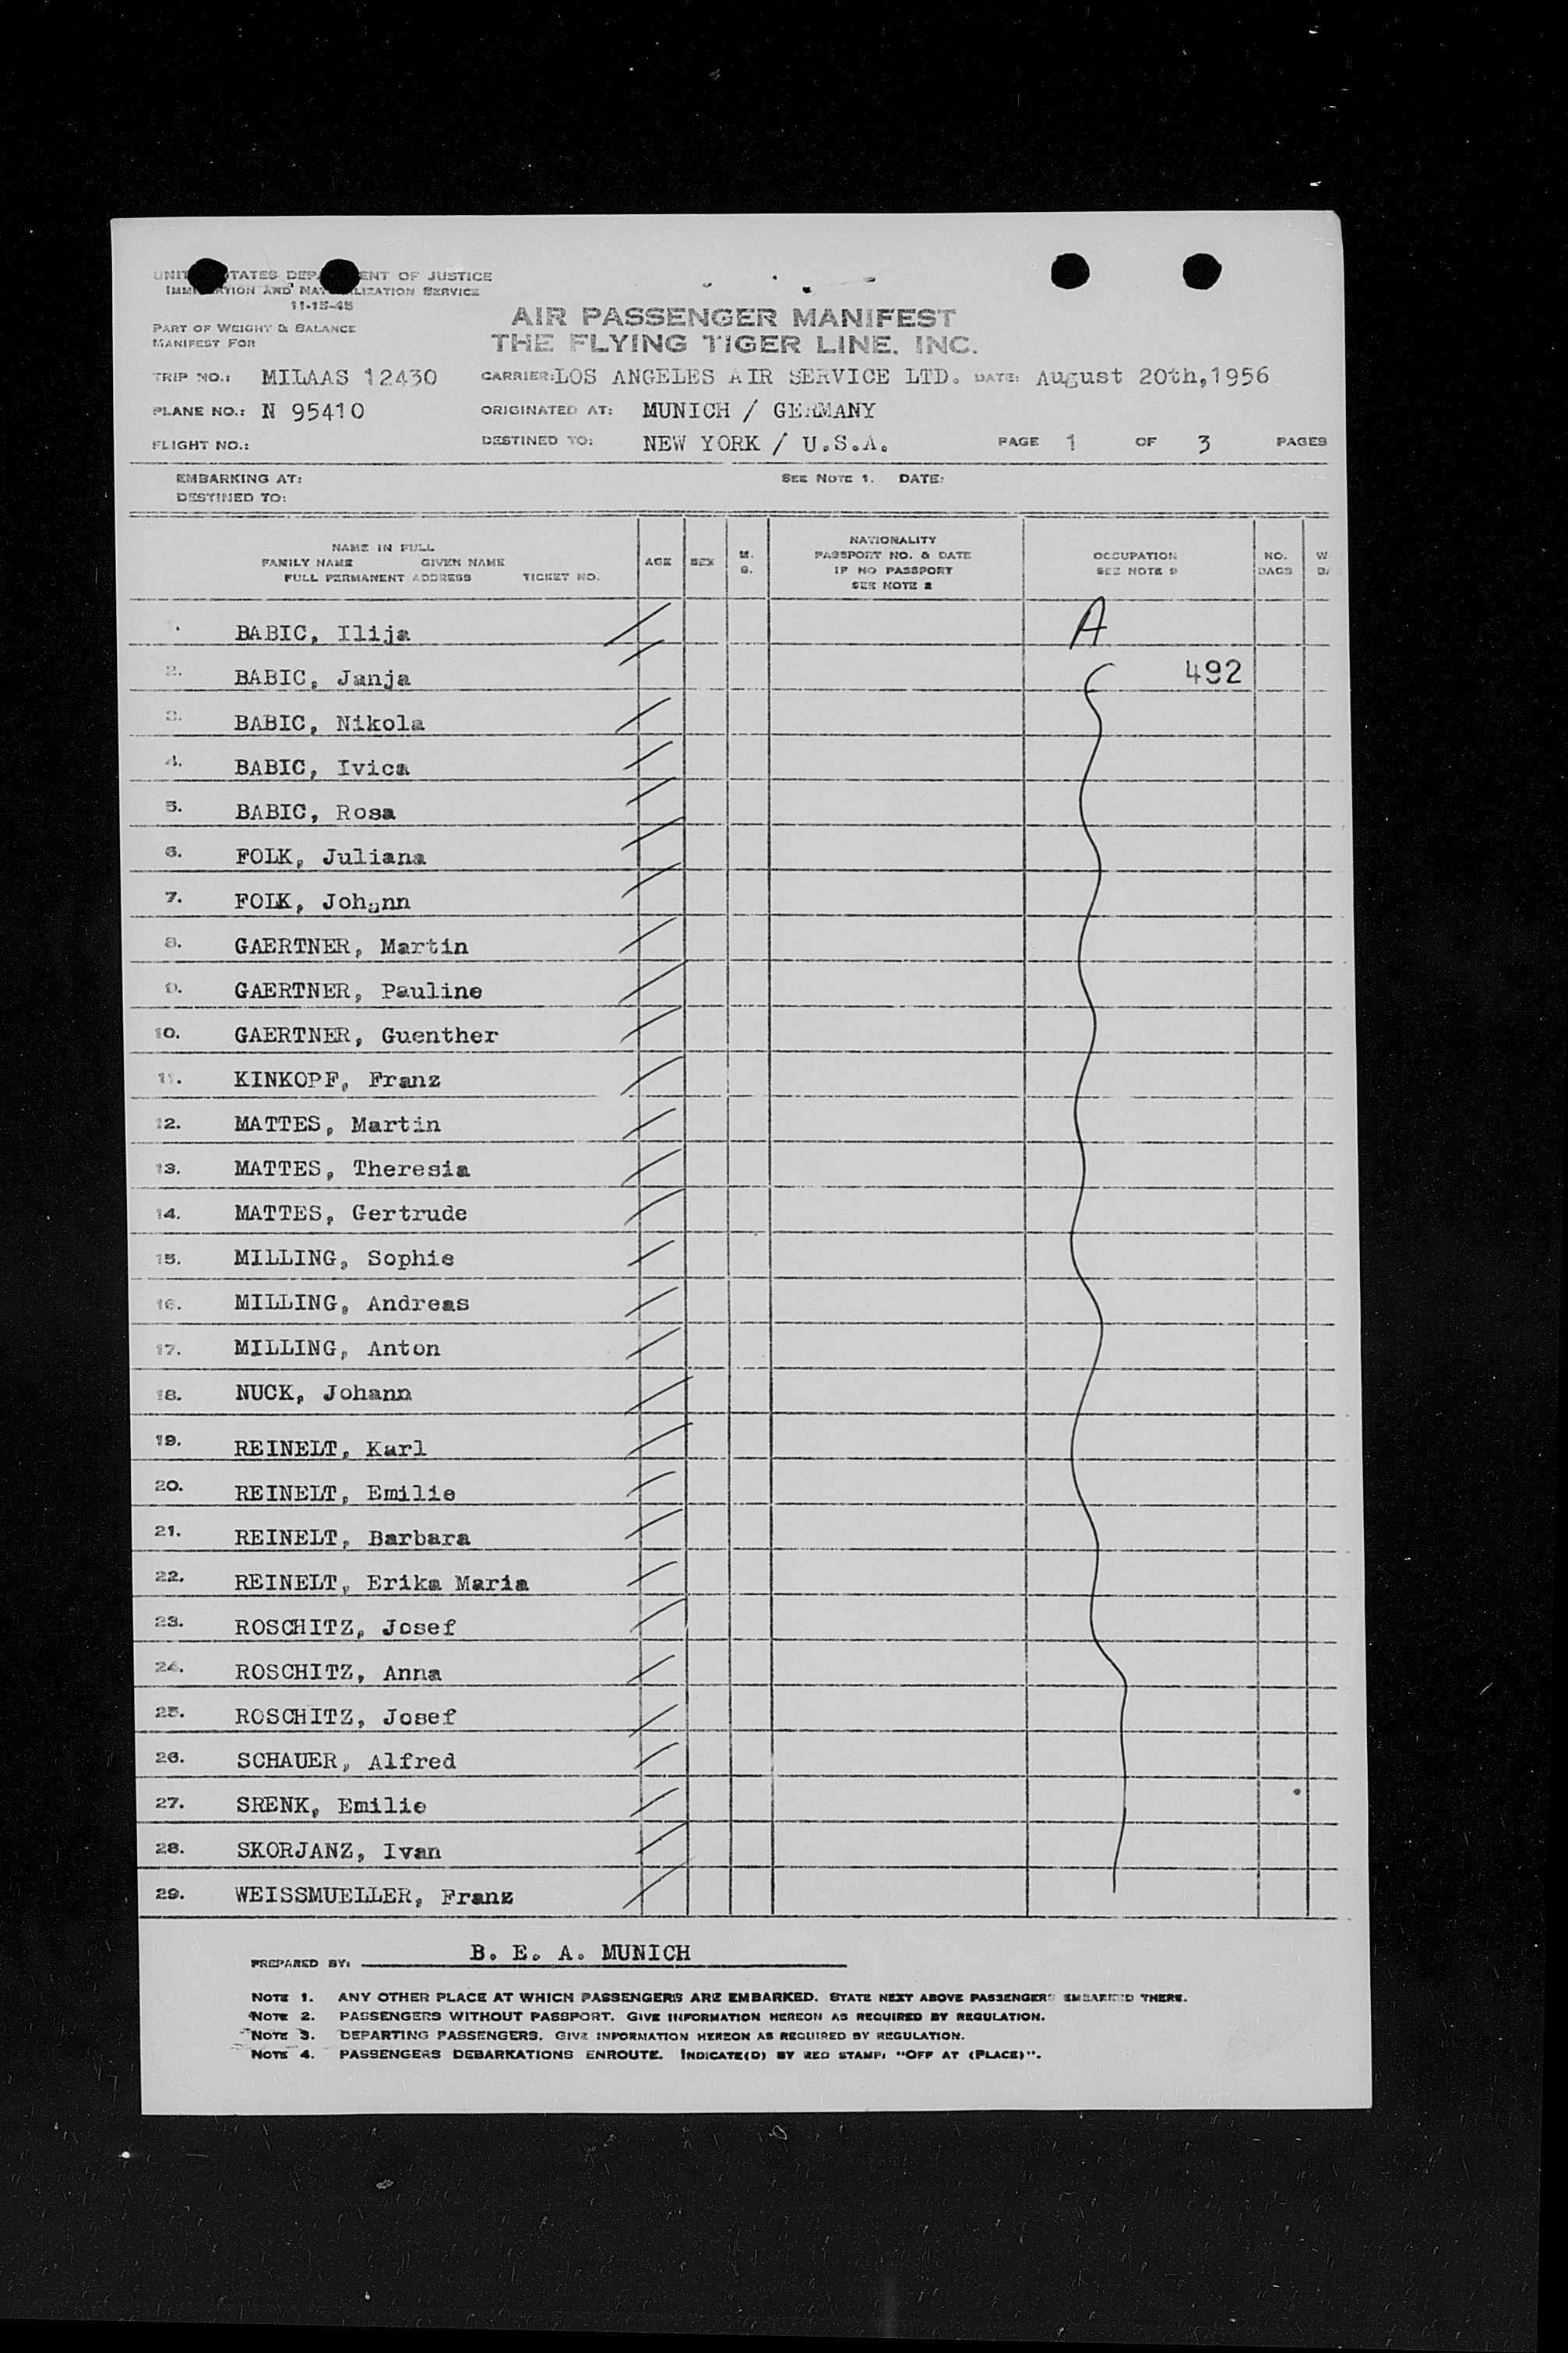 UNITED STATES DEPARTMENT OF JUSTICE
IMMIGRATION AND NATURALIZATION SERVICE
11-15-45
PART OF WEIGHT & BALANCE
MANIFEST FOR
AIR PASSENGER MANIFEST
THE FLYING TIGER LINE, INC.
TRIP NO.: MILAAS 12430 CARRIER: LOS ANGELES AIR SERVICE LTD. DATE: August 20th,1956
PLANE NO.: N 95410 ORIGINATED AT: MUNICH / GERMANY
FLIGHT NO.: DESTINED TO: NEW YORK / U.S.A. PAGE 1 OF 3 PAGES
EMBARKING AT: SEE NOTE 1. DATE:
DESTINED TO:
NAME IN FULL
FAMILY NAME GIVEN NAME
FULL PERMANENT ADDRESS TICKET NO.
AGE
SEX
M.
S.
NATIONALITY
PASSPORT NO. & DATE
IF NO PASSPORT
SEE NOTE 2
OCCUPATION
SEE NOTE 3
NO.
BAGS
1. BABIC, Ilija A
2. BABIC, Janja 492
3. BABIC, Nikola
4. BABIC, Ivica
5. BABIC, Rosa
6. FOLK, Juliana
7. FOLK, Johann
8. GAERTNER, Martin
9. GAERTNER, Pauline
10. GAERTNER, Guenther
11. KINKOPF, Franz
12. MATTES, Martin
13. MATTES, Theresia
14. MATTES, Gertrude
15. MILLING, Sophie
16. MILLING, Andreas
17. MILLING, Anton
18. NUCK, Johann
19. REINELT, Karl
20. REINELT, Emilie
21. REINELT, Barbara
22. REINELT, Erika Maria
23. ROSCHITZ, Josef
24. ROSCHITZ, Anna
25. ROSCHITZ, Josef
26. SCHAUER, Alfred
27. SRENK, Emilie
28. SKORJANZ, Ivan
29. WEISSMUELLER, Franz
PREPARED BY: B. E. A. MUNICH
NOTE 1. ANY OTHER PLACE AT WHICH PASSENGERS ARE EMBARKED. STATE NEXT ABOVE PASSENGERS EMBARKED THERE.
NOTE 2. PASSENGERS WITHOUT PASSPORT. GIVE INFORMATION HEREON AS REQUIRED BY REGULATION.
NOTE 3. DEPARTING PASSENGERS. GIVE INFORMATION HEREON AS REQUIRED BY REGULATION.
NOTE 4. PASSENGERS DEBARKATIONS ENROUTE. INDICATE(D) BY RED STAMP: "OFF AT (PLACE)".